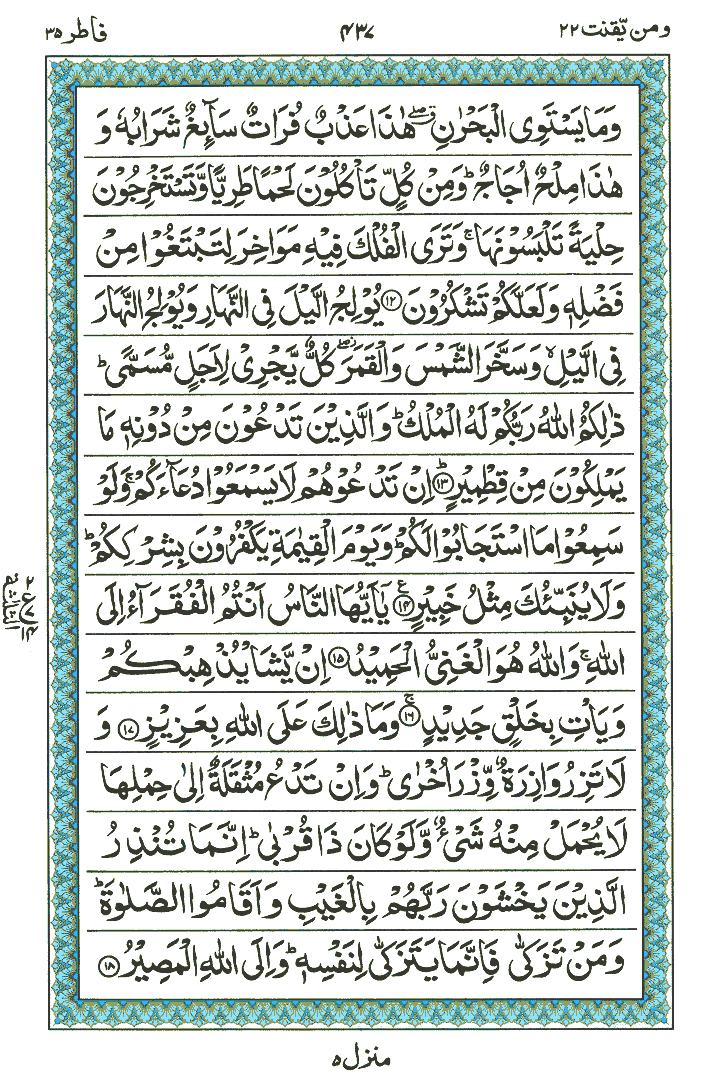 ومن يّقنت ٢٢ ۴۳۷ فاطر ۳۵
وَمَا يَسْتَوِى الْبَحْرٰنِ ۖ هٰذَا عَذْبٌ فُرَاتٌ سَآىِٕغٌ شَرَابُهٗ وَ
هٰذَا مِلْحٌ اُجَاجٌ ؕ وَمِنْ كُلٍّ تَاْكُلُوْنَ لَحْمًا طَرِيًّا وَّتَسْتَخْرِجُوْنَ
حِلْيَةً تَلْبَسُوْنَهَا ۚ وَتَرَى الْفُلْكَ فِيْهِ مَوَاخِرَ لِتَبْتَغُوْا مِنْ
فَضْلِهٖ وَلَعَلَّكُمْ تَشْكُرُوْنَ ﴿۱۲﴾ يُوْلِجُ الَّيْلَ فِى النَّهَارِ وَيُوْلِجُ النَّهَارَ
فِى الَّيْلِ ۙ وَسَخَّرَ الشَّمْسَ وَالْقَمَرَ ۖ كُلٌّ يَّجْرِىْ لِاَجَلٍ مُّسَمًّى ؕ
ذٰلِكُمُ اللّٰهُ رَبُّكُمْ لَهُ الْمُلْكُ ؕ وَالَّذِيْنَ تَدْعُوْنَ مِنْ دُوْنِهٖ مَا
يَمْلِكُوْنَ مِنْ قِطْمِيْرٍ ؕ ﴿۱۳﴾ اِنْ تَدْعُوْهُمْ لَا يَسْمَعُوْا دُعَآءَكُمْ ۚ وَلَوْ
سَمِعُوْا مَا اسْتَجَابُوْا لَكُمْ ؕ وَيَوْمَ الْقِيٰمَةِ يَكْفُرُوْنَ بِشِرْكِكُمْ ؕ
وَلَا يُنَبِّئُكَ مِثْلُ خَبِيْرٍ ﴿۱۴﴾ ع يٰۤاَيُّهَا النَّاسُ اَنْتُمُ الْفُقَرَآءُ اِلَى
اللّٰهِ ۚ وَاللّٰهُ هُوَ الْغَنِىُّ الْحَمِيْدُ ﴿۱۵﴾ اِنْ يَّشَاْ يُذْهِبْكُمْ
وَيَاْتِ بِخَلْقٍ جَدِيْدٍ ۚ ﴿۱۶﴾ وَمَا ذٰلِكَ عَلَى اللّٰهِ بِعَزِيْزٍ ﴿۱۷﴾ وَ
لَا تَزِرُ وَازِرَةٌ وِّزْرَ اُخْرٰى ؕ وَاِنْ تَدْعُ مُثْقَلَةٌ اِلٰى حِمْلِهَا
لَا يُحْمَلْ مِنْهُ شَىْءٌ وَّلَوْ كَانَ ذَا قُرْبٰى ؕ اِنَّمَا تُنْذِرُ
الَّذِيْنَ يَخْشَوْنَ رَبَّهُمْ بِالْغَيْبِ وَاَقَامُوا الصَّلٰوةَ ؕ
وَمَنْ تَزَكّٰى فَاِنَّمَا يَتَزَكّٰى لِنَفْسِهٖ ؕ وَاِلَى اللّٰهِ الْمَصِيْرُ ﴿۱۸﴾
منزل ۵